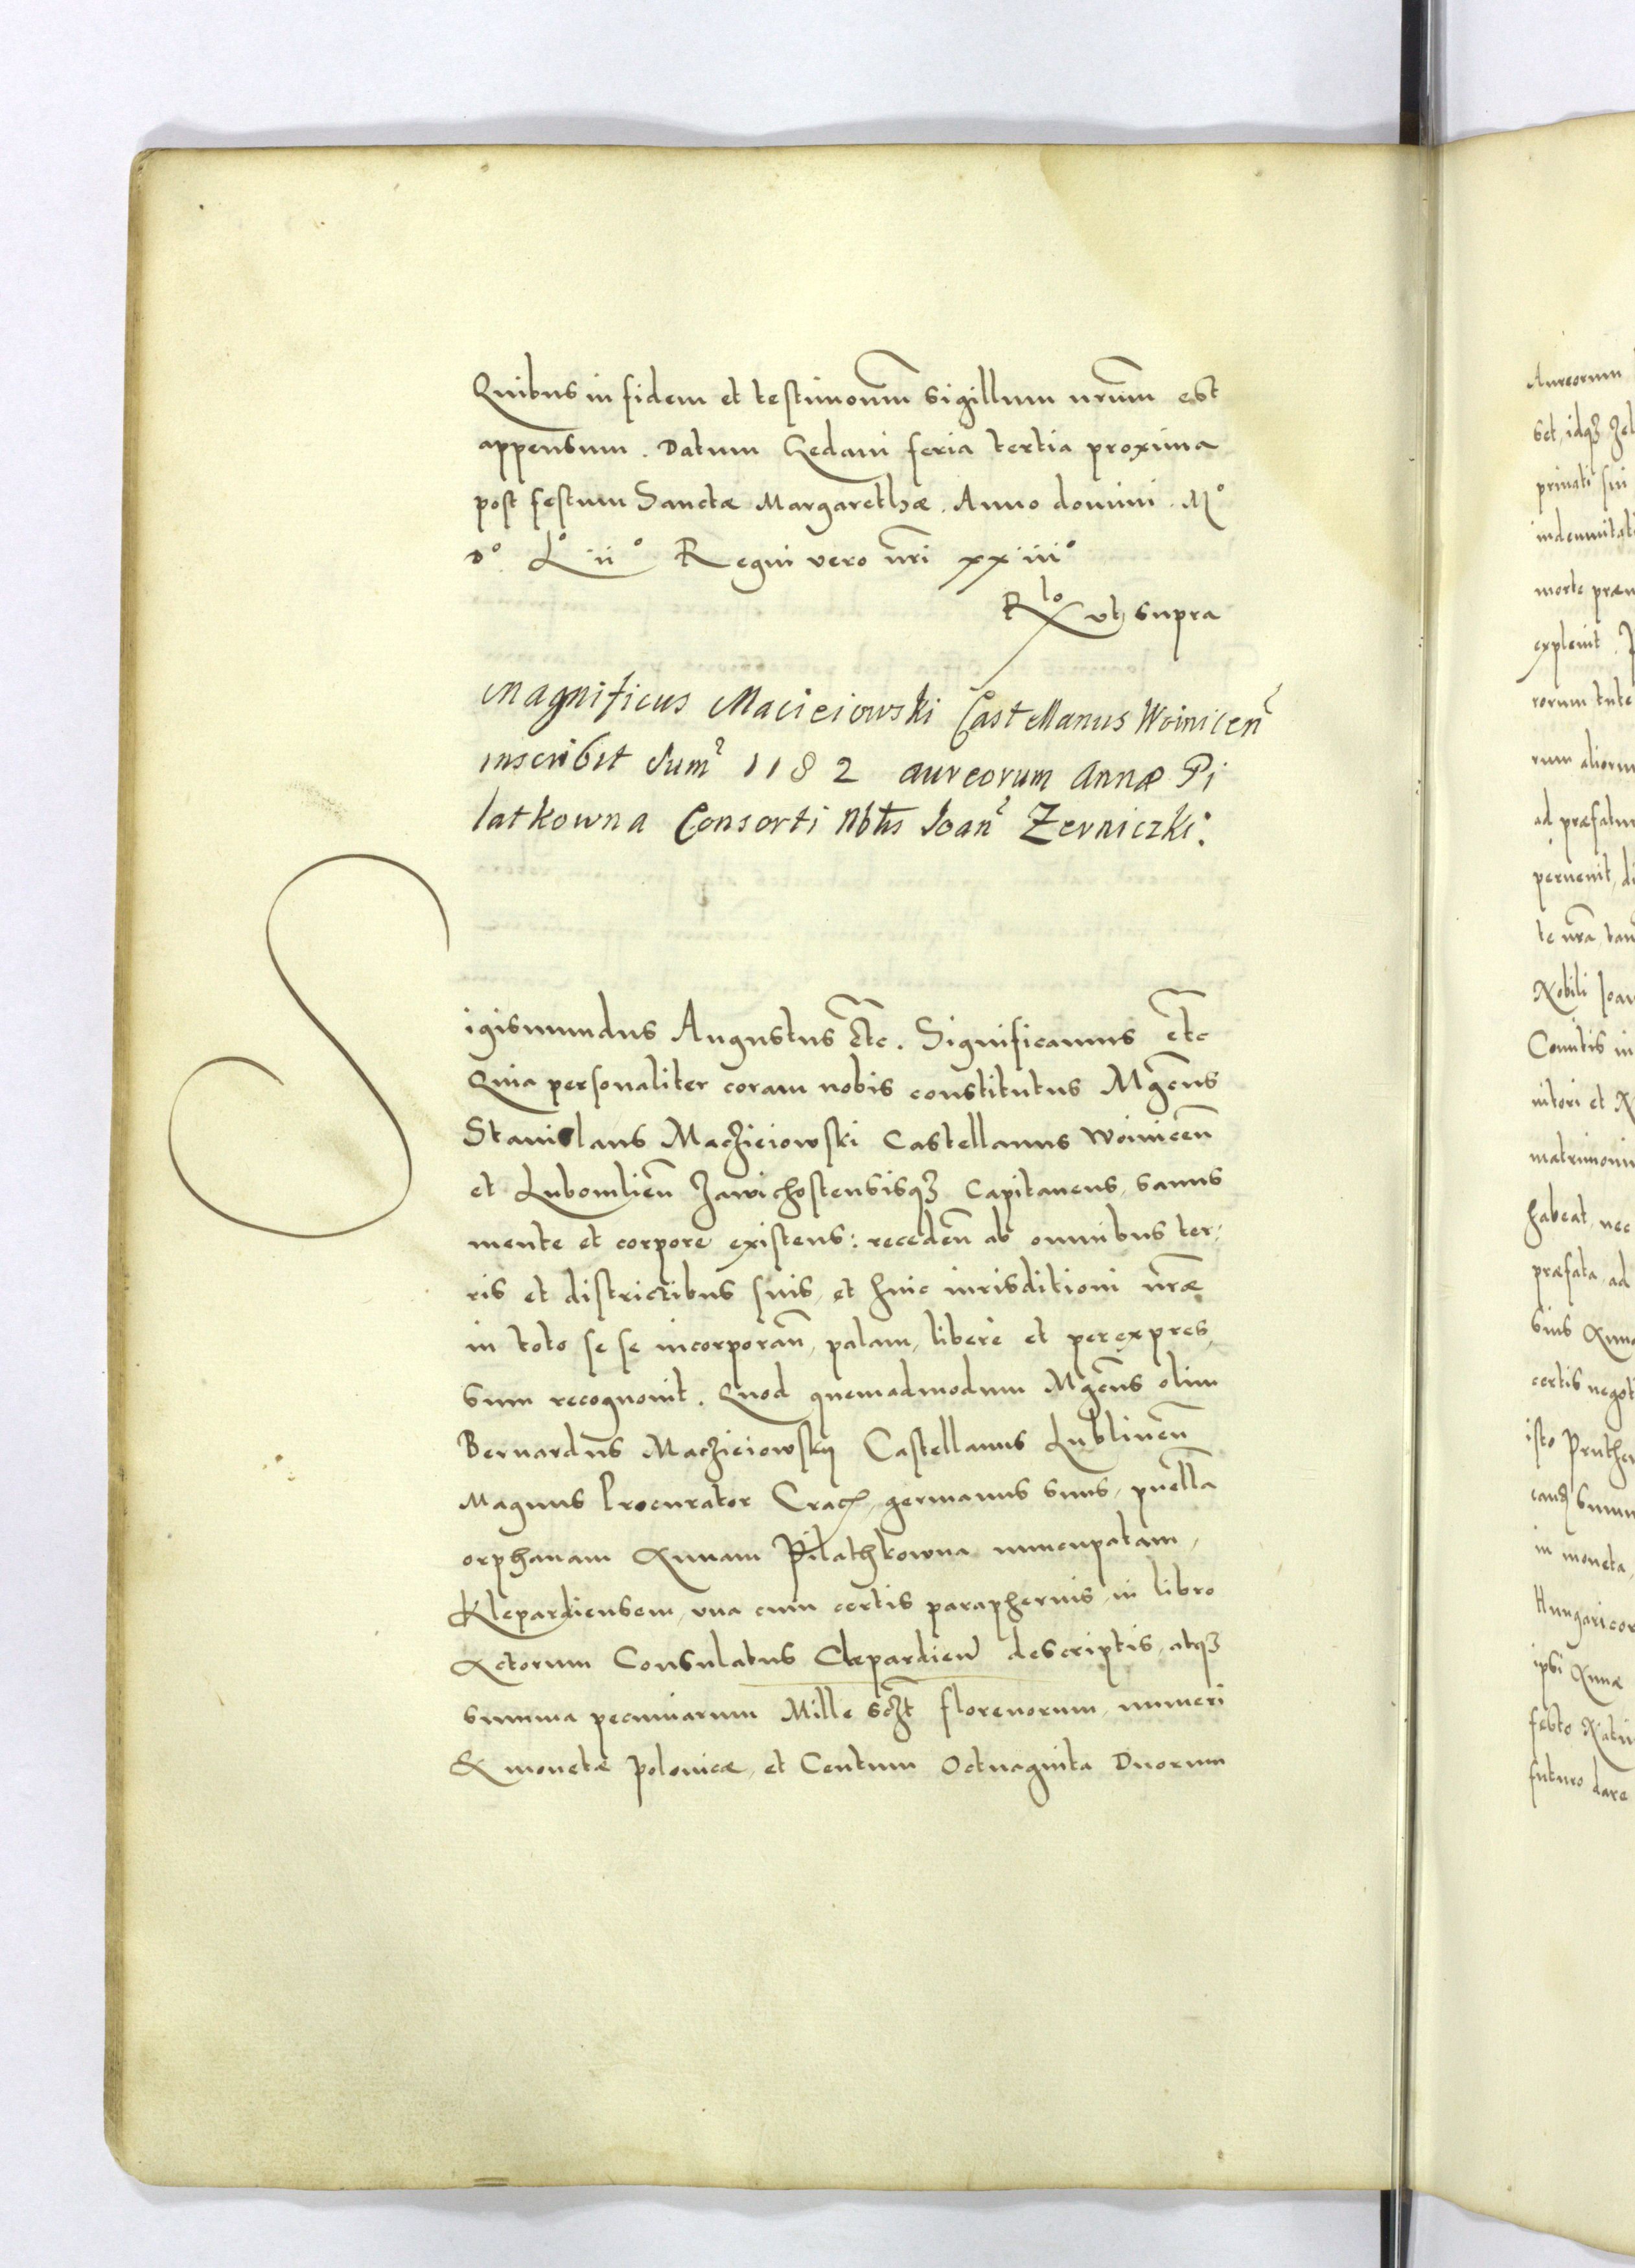 Quibus in fidem et testimoniũm sigillum nrũm est
appensum. Datum Gedani feria tertia proxima
post festum Sanctæ Margarethæ. Anno domini. Mº
Dº Lº iiº Regni vero nr̃i xxiiiº
Rlo vt supra
Magnificus Macieiowski Castellanus Woinicen̄
inscribit Sum̄ 1182 aureorum Annæ Pi
latkowna Consorti Nblis Joan̄ Zerniczki.
Sigismundus Augustus etc̃. Significamus etc̃
Quia personaliter coram nobis constitutus Mgc̃us
Stanislaus Maczieiowski Castellanus Woinicen̄
et Lubomlien̄ Zawichostensisqȝ Capitaneus, sanus
mente et corpore existens: receden̄ ab omnibus ter,
ris et districtibus suis, et huic iurisditioni nr̃æ
in toto se se incorporan̄, palam, libere et per expres,
sum recognouit. Quod quemadmodum Mgc̃us olim
Bernardus Maczieiowskij Castellanus Lublinen̄
Magnus Procurator Crac, germanus suus, puellã
orphanam Annam Pilathkowna nuncupatam,
Klepardiensem, vna cum certis paraphernis, in libro
Actorum Consulatus Clepardien̄ descriptis, atqȝ
summa pecuniarum Mille sczt florenorum, numeri
& monetæ Polonicæ, et Centum Octuaginta Duorum
Aureorum
set, idqȝ
priuati sui
morte
expleuit.
rum
ad præfatum
peruenit,
te nr̃a
Nobili
Comitis in
nitori et
habeat, nec
præfata, ad
certis
isto
in moneta,
ipsi Annæ
festo
futuro dare